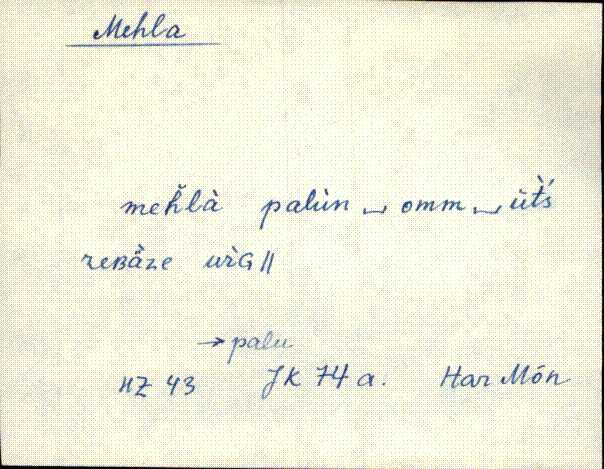 Mehla
meh̆là palùn ‿ omm ‿ üt̀ś
reʙä̀ze ùiɢ ||
→ palu
HZ 43 JK 74 a. Har Món